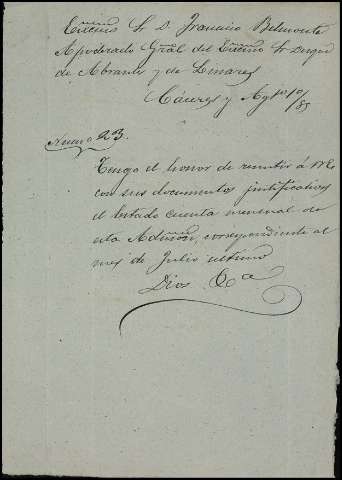 Excmo Sr D. Francisco Belmonte
Apoderado Gral del Excmo Sr Duque
de Abrantes y de Linares
Cáceres y Agto 10/85
Numo 23.
Tengo el honor de remitir á VE.
con sus documentos justificativos
el estado cuenta mensual de
esta Admon, correspondiente al
mes de Julio ultimo
Dios &a